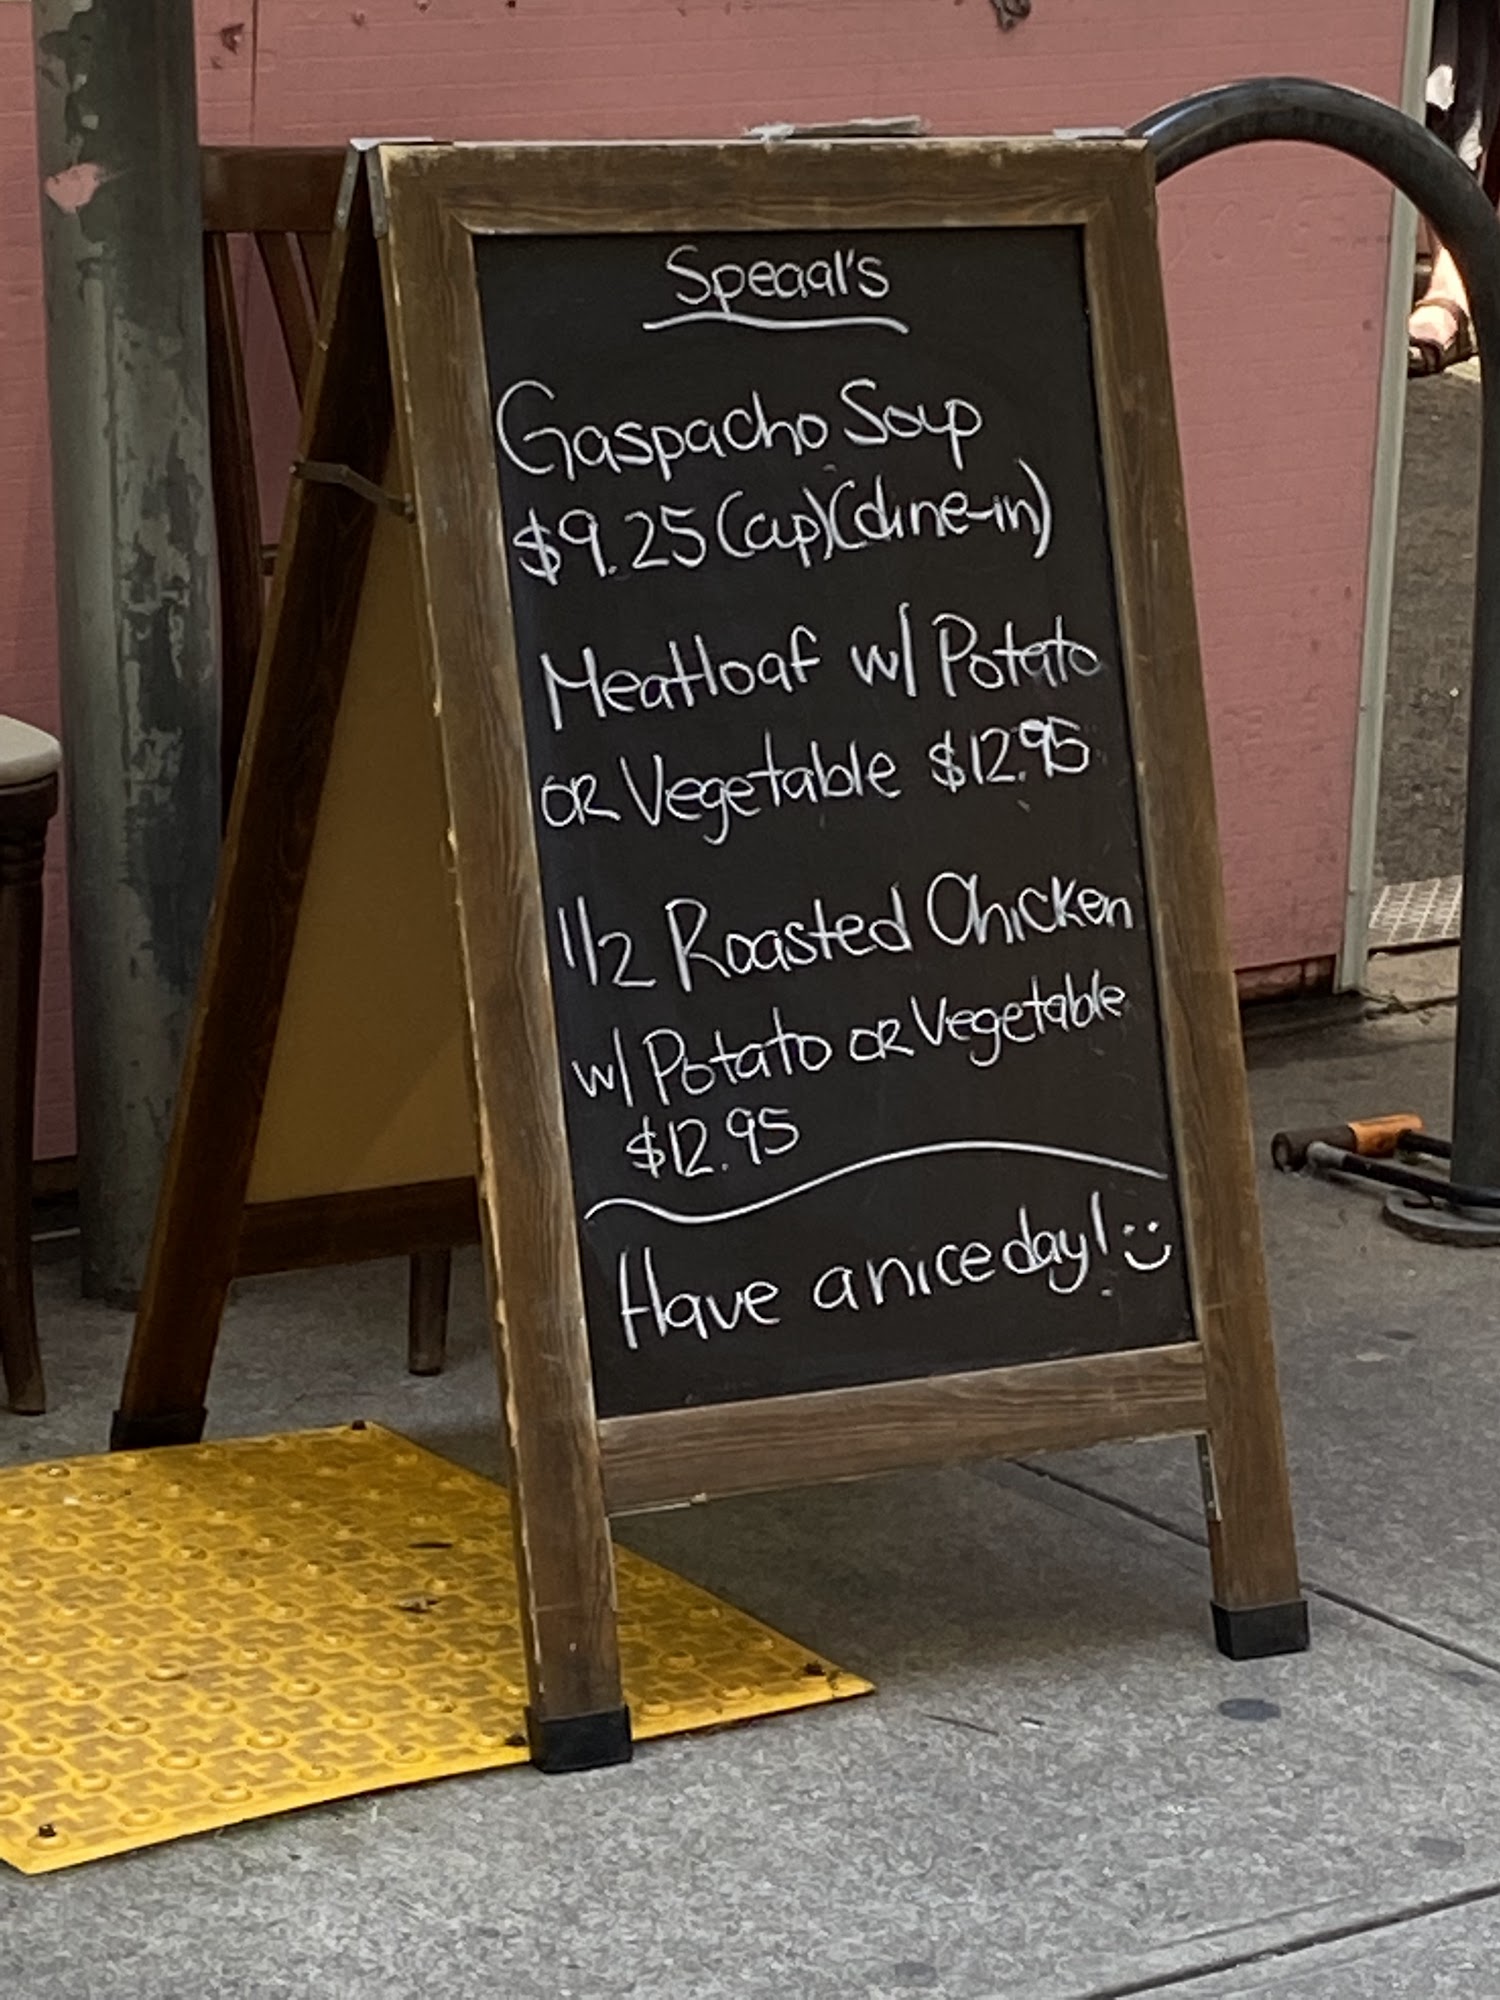 Special's
Gaspacho Soup
$9.25 (cup) (dine-in)
Meatloaf w/ Potato
OR Vegetable $12.95
1/2 Roasted Chicken
w/ Potato OR Vegetable
$12.95
Have a nice day! :)